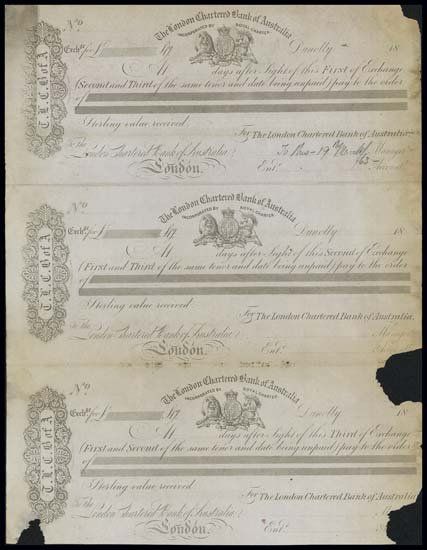 The London Chartered Bank of Australia
INCORPORATED BY ROYAL CHARTER.
No
Exche. for £ 147 Dunolly 18
At days after Sight of this First of Exchange
(Second and Third of the same tenor and date being unpaid) pay to the order
of
Sterling value received
For The London Chartered Bank of Australia.
To The
London Chartered Bank of Australia. Manager
London. Ent. Account
T.L.C.B of A
The London Chartered Bank of Australia
INCORPORATED BY ROYAL CHARTER.
No
Exche. for £ 147 Dunolly 18
At days after Sight of this Second of Exchange
(First and Third of the same tenor and date being unpaid) pay to the order
of
Sterling value received
For The London Chartered Bank of Australia.
To The
London Chartered Bank of Australia
London. Ent.
T.L.C.B of A
The London Chartered Bank of Australia
INCORPORATED BY ROYAL CHARTER.
No
Exche. for £ 147 Dunolly 18
At days after Sight of this Third of Exchange
(First and Second of the same tenor and date being unpaid) pay to the order
of
Sterling value received
For The London Chartered Bank of Australia
To The
London Chartered Bank of Australia
London. Ent.
T.L.C.B of A